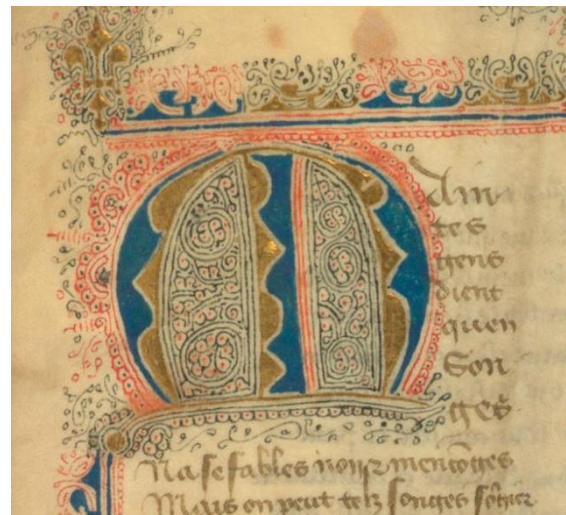 MAin
tes
gens
dient
quen
Son
ges.
Na se fables non ⁊ mencōges
Mais on peut telz songes sōgier